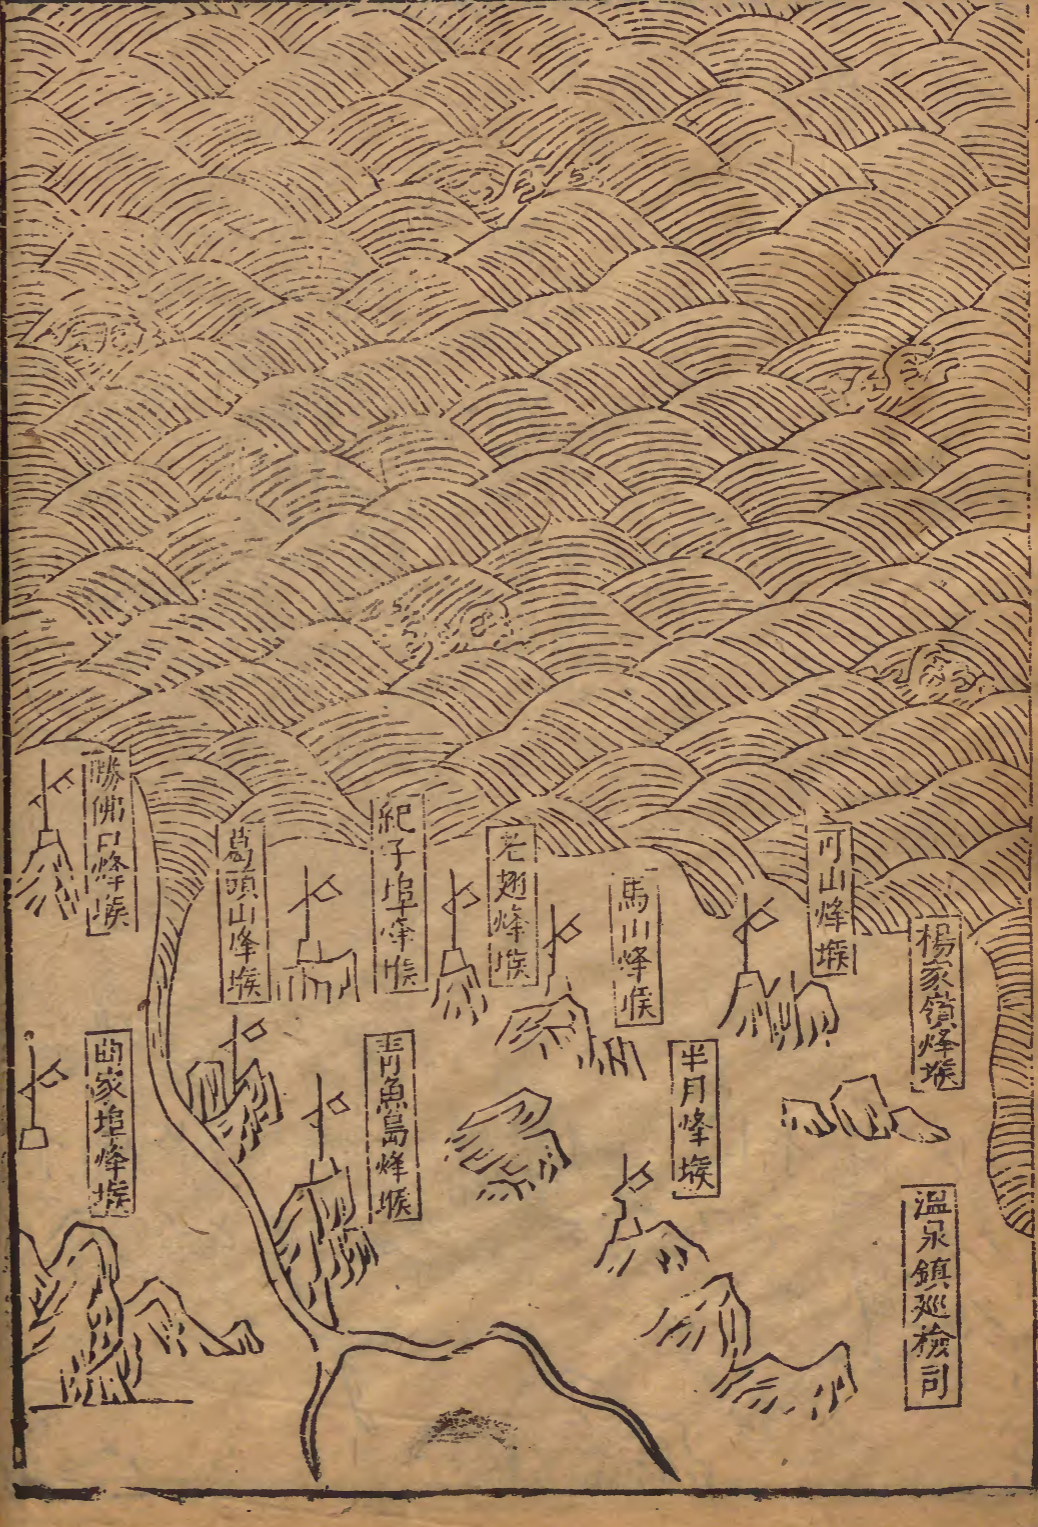 楊家嶺烽堠
溫泉鎮巡檢司
可山烽堠
半月烽堠
馬山烽堠
老翅烽堠
紀子埠烽堠
青魚島烽堠
葛頭山烽堠
勝佛口烽堠
曲家埠烽堠